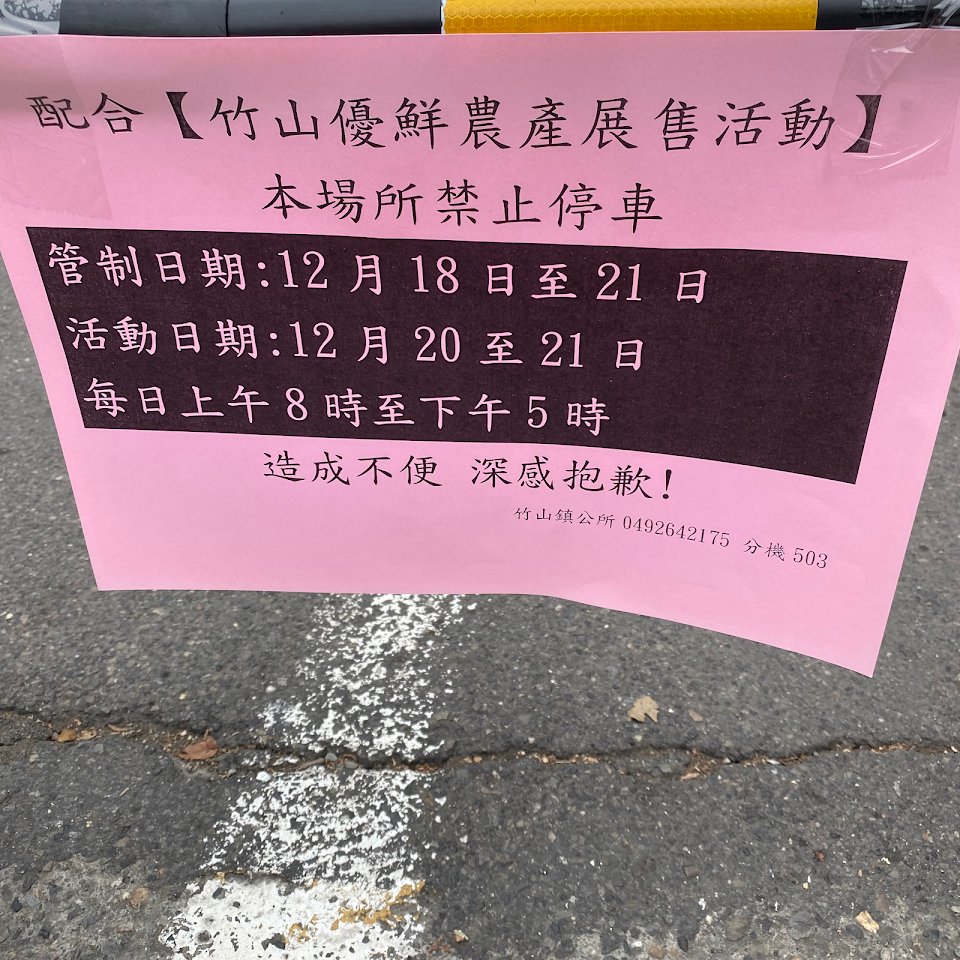 配合【竹山優鮮農產展售活動】
本場所禁止停車
管制日期:12月18日至21日
活動日期:12月20至21日
每日上午8時至下午5時
造成不便 深感抱歉!
竹山鎮公所 0492642175 分機 503